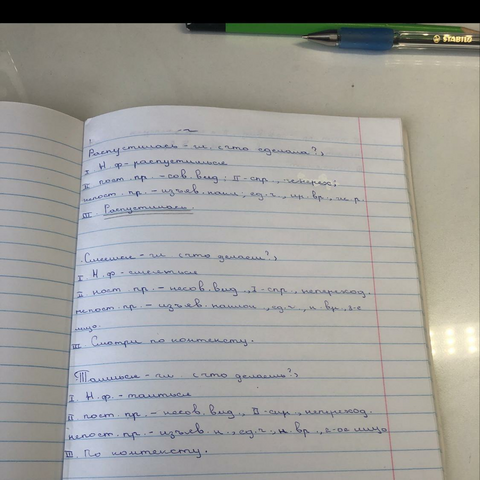 STABILO
Распустилась - гл. (что сделала?)
I Н.ф - распуститься
II пост. пр. - сов. вид; II - спр., неперех;
непост. пр. - изъяв. накл; ед.ч., пр. вр., ж.р.
III Распустилась.
Смеешься - гл. (что делаешь?)
I Н.ф - смеяться
II пост. пр. - несов. вид., I - спр., непереход.
непост. пр. - изъяв. наклон., ед.ч, н. вр., 2-е
лицо.
III Смотри по контексту.
Таишься - гл. (что делаешь?)
I Н.ф. - таиться
II пост. пр. - несов. вид., II - спр., непереход.
непост. пр. - изъяв. н., ед.ч., н. вр., 2-ое лицо
III По контексту.